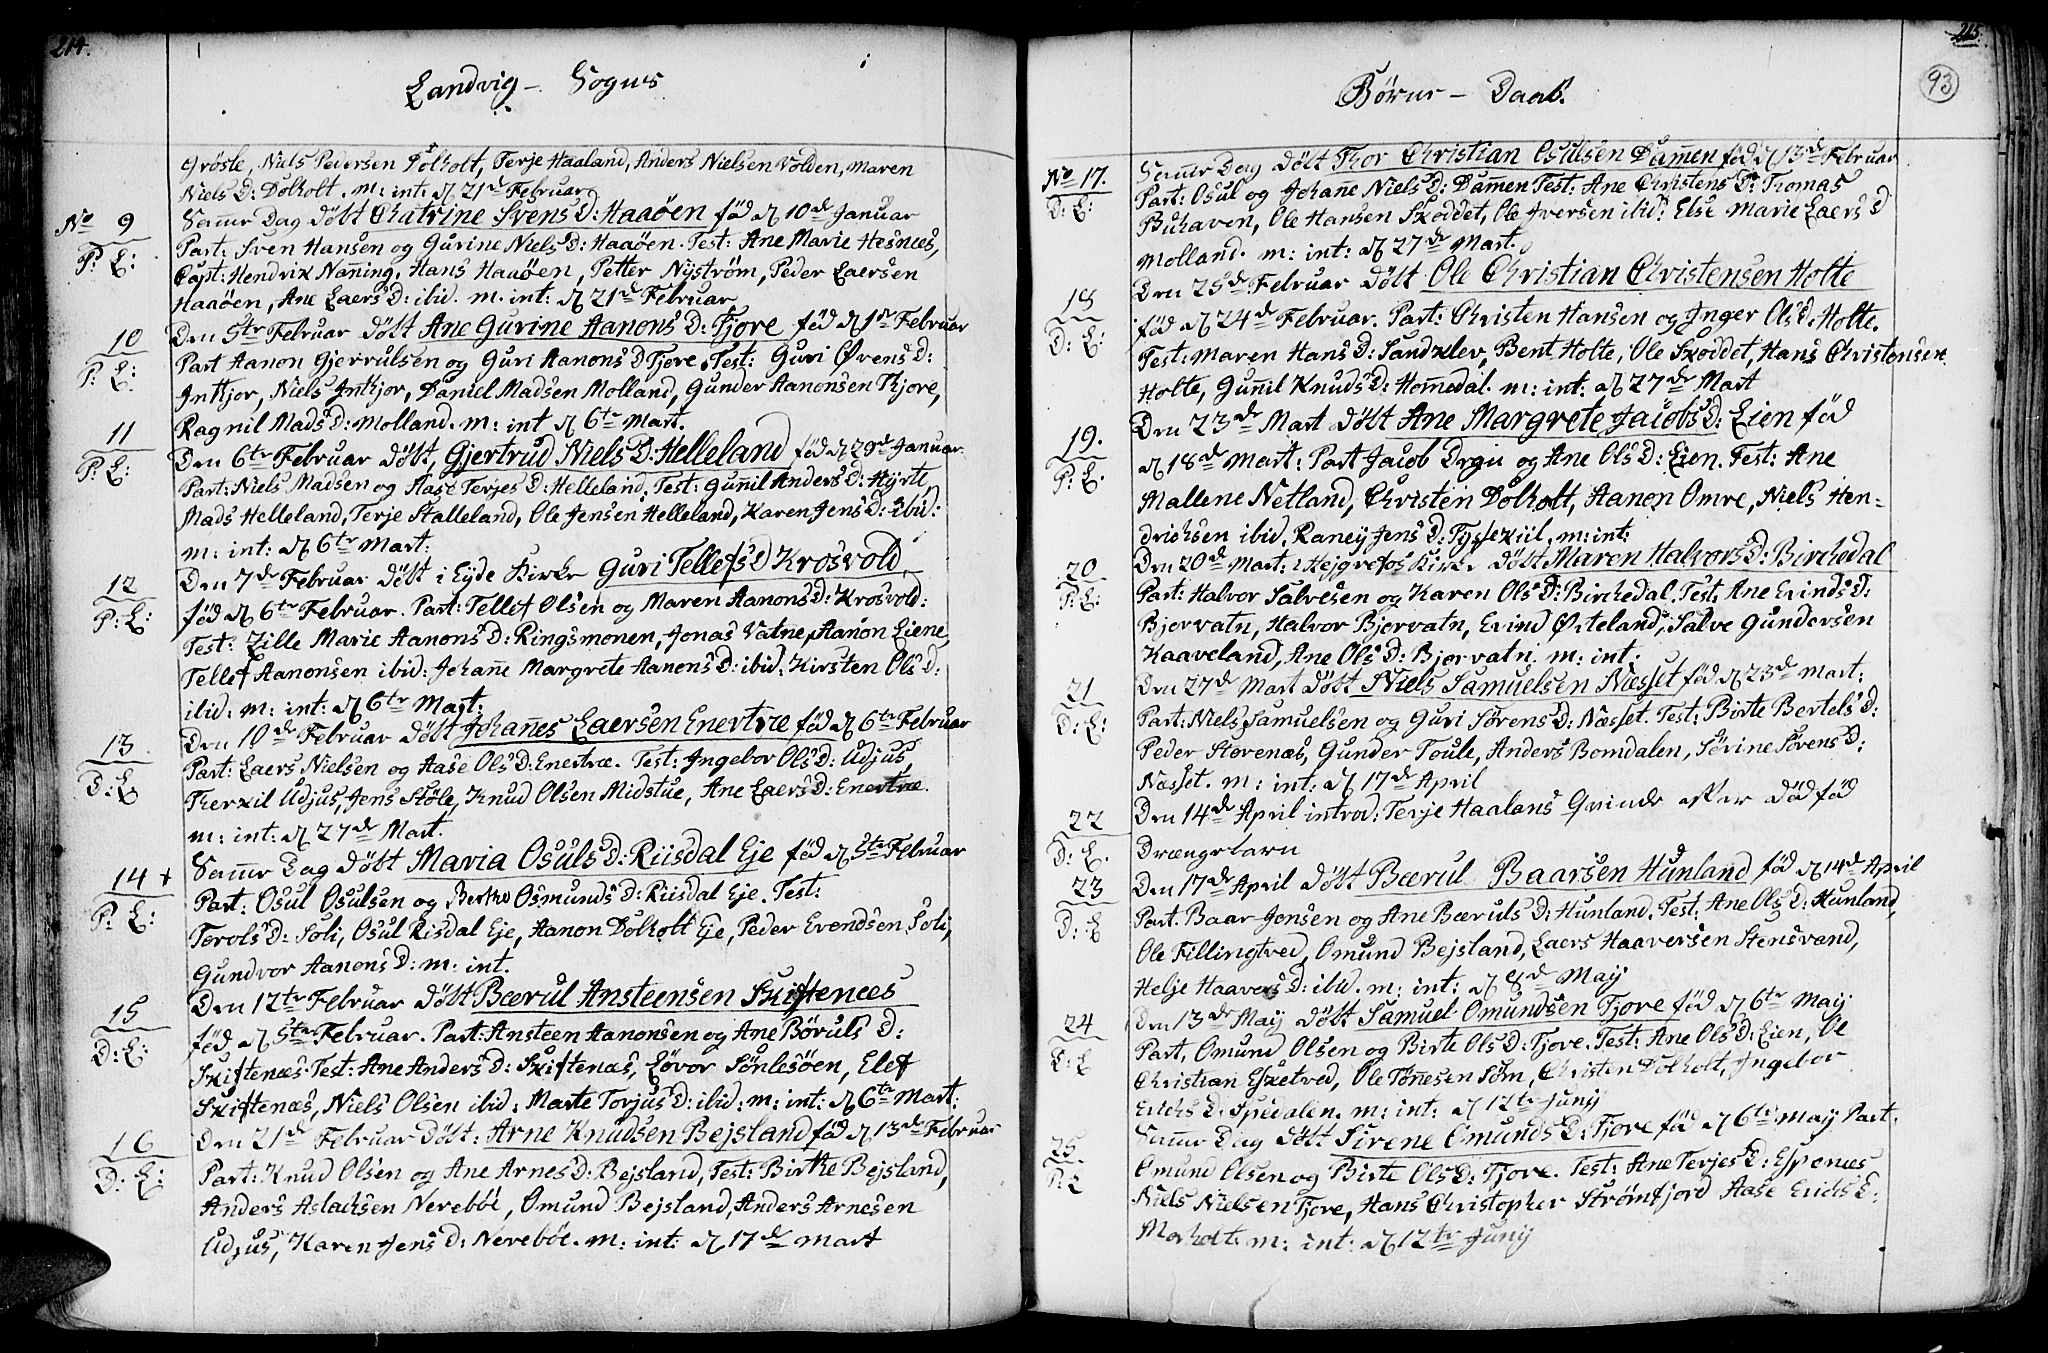 214.
Landvig - Sogns
Grösle, Niels Pedersen Dolholt, Terje Haaland, Anders Nielsen Volden, Maren
Niels D: Dolholt. m: int. d 21de Februar
No 9 Samme Dag döbt Chatrine Svens D: Haaöen föd d 10de Januar
P: E: Part: Sven Hansen og Gurine Niels D: Haaöen. Test: Ane Marie Hesnees,
Capt: Hendrik Naming, Hans Haaöen, Petter Nyström, Peder Laersen
Haaöen, Ane Laers D: ibid. m. int: d 21de Februar
10 Den 5te Februar döbt Ane Gurine Aanons D: Fjore föd d 1ste Februar
P: E: Part Aanon Gjerrulsen og Guri Aanons D Fjore. Test: Guri Øvens D:
Inkjor, Niels Inkjor, Daniel Madsen Molland, Gunder Aanonsen Fjore,
Ragnil Mads D: Molland. m: int d 6te Mart.
11 Den 6te Februar döbt, Gjertrud Niels D: Helleland föd d 29de Januar
P: E: Part: Niels Madsen og Aase Terjes D: Helleland. Test: Gunnil Anders D: Hyrte,
Mads Helleland, Terje Stalleland, Ole Jensen Helleland, Karen Jens D: ibid:
m: int: d 6te Mart:
12 Den 7de Februar döbt i Eyde Kirke Guri Tellefs D Krosvold
P: E: föd d 6te Februar. Part: Tellef Olsen og Maren Aanons D: Krosvold:
Test: Zille Marie Aanons D: Ringsmonen, Jonas Vatne, Aanon Liene
Tellef Aanonsen ibid: Johane Margrete Aanons D: ibid: Kirsten Ols D:
ibid: m: int: d 6te Mart:
13 Den 10de Februar döbt Johannes Laersen Enertræ föd d 6te Februar
D: E Part: Laers Nielsen og Aase Ols D: Enertræ. Test: Ingebor Ols D: Udjus,
Therkil Udjus, Jens Stöle, Knud Olsen Midstue, Ane Laers D: Enertræ.
m: int: d 27de Mart.
14 + Samme Dag döbt Maria Osuls D: Riisdal Eje föd d 5te Februar
P: E: Part: Osul Osulsen og Berthe Osmunds D: Riisdal Eje. Test:
Torols D: Soli, Osul Risdal Eje, Aanon Dolholt Eje, Peder Evendsen Soli,
Gundvor Aanons D: m: int.
15 Den 12te Februar döbt Bærul Ansteensen Skiftenees
D: E: föd d 5te Februar. Part: Ansteen Aanonsen og Ane Böruls D:
Skiftenæs. Test: Ane Anders D: Skiftenæs, Eövor Sönlesöen, Elef
Skiftenæs, Niels Olsen ibid: Marte Torjus D: ibid: m: int: d 6te Mart:
16 Den 21de Februar Döbt: Arne Knudsen Bejsland föd d 13de Februar
D: E: Part: Knud Olsen og Ane Arnes D: Bejsland, Test: Birthe Bejsland,
Anders Aslachsen Nereböe, Omund Bejsland, Anders Arnesen
Udjus, Karen Jens D: Nereböe. m: int: d 17de mart
215.
93
Börns - Daab.
No 17. Samme Dag döbt Thor Christian Osulsen Dammen föd d 13de Februar
D: E: Part: Osul og Johane Niels D: Dammen Test: Ane Christens D: Thomas
Buhaven, Ole Hansen Skoddet, Ole Iversen ibid: Else Marie Laers D
Molland. m: int: d 27de Mart.
18 Den 25de Februar döbt Ole Christian Christensen Holte
D: E: föd d 24de Februar. Part: Christen Hansen og Inger Ols D: Holte.
Test: Maren Hans D: Landklev, Bent Holte, Ole Skoddet, Hans Christensen
Holte, Gunnil Knuds D: Homedal. m: int: d 27de Mart
19. Den 23de Mart döbt Ane Margrete Jacobs D: Eien föd
P: E: d 18de Mart: Part Jacob Drgu og Ane Ols D: Eien. Test: Ane
Mallene Netland, Christen Dolholt, Aanon Omre, Niels Hen-
drichsen ibid, Raney Jens D: Fyssekiil. m: int:
20 Den 20de Mart: i Hejgrefos Kirke döbt Maren Halvors D: Birkedal
P: E: Part: Halvor Salvesen og Karen Ols D: Birchedal. Test: Ane Evinds D:
Bjorvatn, Halvor Bjorvatn, Evind Ørteland, Salve Gundersen
Kaaveland, Ane Ols D: Bjorvatn. m: int:
21 Den 27de Mart döbt Niels Samuelsen Næsset föd d 23de Mart:
D: E: Part: Niels Samuelsen og Guri Sörens D: Næsset. Test: Birte Bertels D:
Peder Storenæs, Gunder Toule, Anders Bomdalen, Sörine Sörens D:
Næsset. m: int: d 17de April
22 Den 14de April introd: Terje Haalans Qvinde efter död föd
D: E. Drængebarn
23 Den 17de April döbt Bærul Baarsen Hunland föd d 14de April
D: E Part. Baar Jensen og Ane Bæruls D: Hunland. Test: Ane Ols D: Hunland,
Ole Fillingtved, Omund Bejsland, Laers Haaversen Stensvand,
Helje Haavers D: ibid. m: int: d 8de May
24 Den 13de May döbt Samuel Omundsen Fjore föd d 6te May
E: E Part, Omund Olsen og Birte Ols D: Fjore. Test: Ane Ols D: Eien, Ole
Christian Esketved, Ole Tönnesen Söm, Christen Dolholt, Ingebor
Erichs D: Spedalen. m: int: d 12te Junij
25. Samme Dag döbt Sirene Omunds D: Fjore föd d 6te May Part.
P: E Omund Olsen og Birte Ols D: Fjore. Test: Ane Terjes D: Espenæs
Niels Nielsen Fjore, Hans Christopher Strömfjord Aase Erichs D:
Morholt. m: int: d 12te Junij